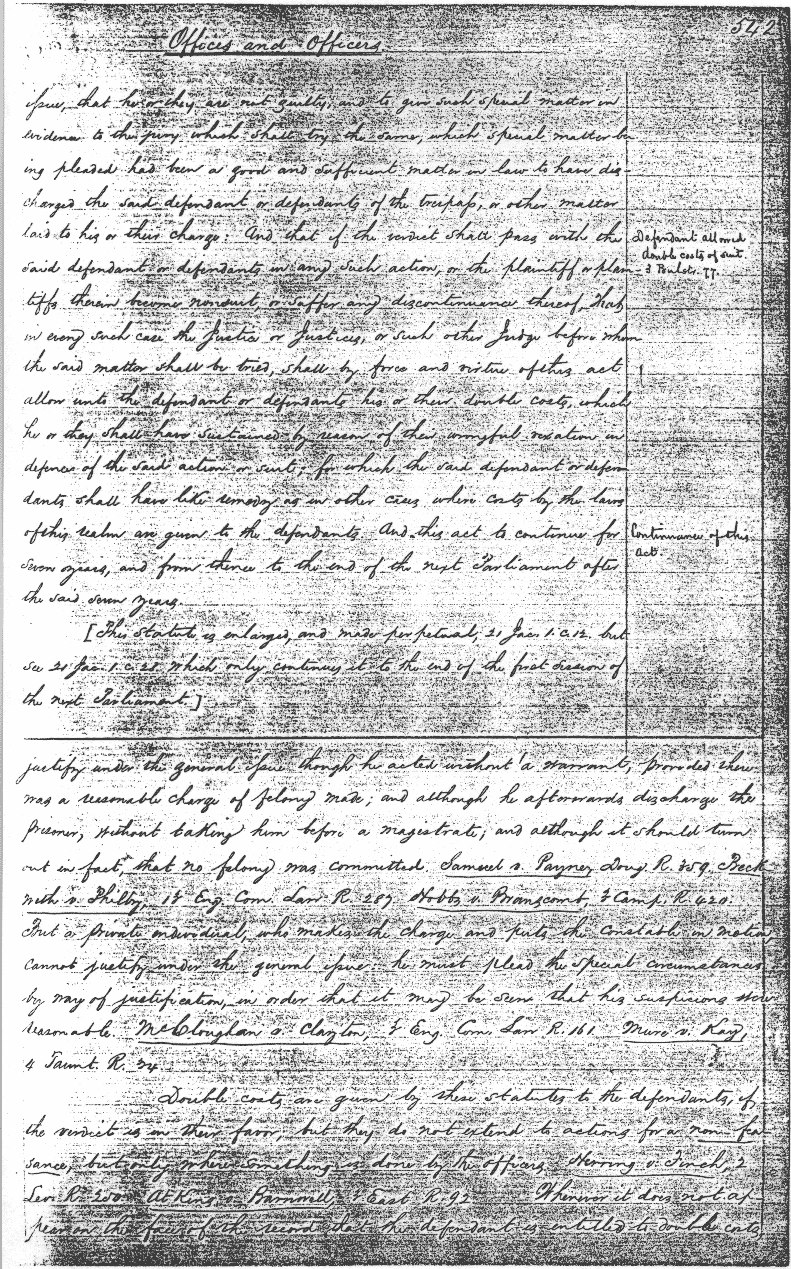 542
Offices and Officers.
issue, that he or they are not guilty, and to give such special matter in
evidence to the jury which shall try the same, which special matter be
ing pleaded had been a good and sufficient matter in law to have dis-
charged the said defendant or defendants of the trespass, or other matter
laid to his or their charge: And that if the verdict shall pass with the
Defendant allowed
double costs of suit.
3 Bulst. 77.
said defendant or defendants in any such action, or the plaintiff or plain
tiffs therein become nonsuit, or suffer any discontinuance thereof, that
in every such case the Justice or Justices, or such other Judge before whom
the said matter shall be tried, shall by force and virtue of this act
allow unto the defendant or defendants his or their double costs, which
he or they shall have sustained by reason of their wrongful vexation in
defence of the said action or suit; for which the said defendant or defen
dants shall have like remedy as in other cases where costs by the laws
of this realm are given to the defendants. And this act to continue for
Continuance of this
act.
seven years, and from thence to the end of the next Parliament after
the said seven years.
[This statute is enlarged, and made perpetual, 21 Jac. 1. c. 12. but
see 21 Jac. 1. c. 28 which only continues it to the end of the first session of
the next Parliament.]
justify under the general issue though he acted without a warrant, provided there
was a reasonable charge of felony made; and although he afterwards discharge the
prisoner, without taking him before a magistrate; and although it should turn
out in fact, that no felony was committed. Samuel v. Payne, Doug R. 359. Beck
with v. Philby, Eng. Com. Law R. 287. Hobbs v. Branscomb, 3 Camp. R 420.
But a private individual, who makes the charge and puts the Constable in motion,
cannot justify under the general issue: he must plead the special circumstances
by way of justification, in order that it may be seen that his suspicions were
reasonable. McCloughan v. Clayton, Eng. Com. Law R. 161. Mure v. Kay,
4 Taunt. R. 34
Double costs are given by these statutes to the defendants, if
the verdict is in their favor; but they do not extend to actions for a non-fea
sance, but only where something is done by the officers. Herring v. Finch, 2
Levi R. 250. Atkins v. Banwell, 3 East R. 92 Whenever it does not ap-
pear on the face of the record that the defendant is entitled to double costs,